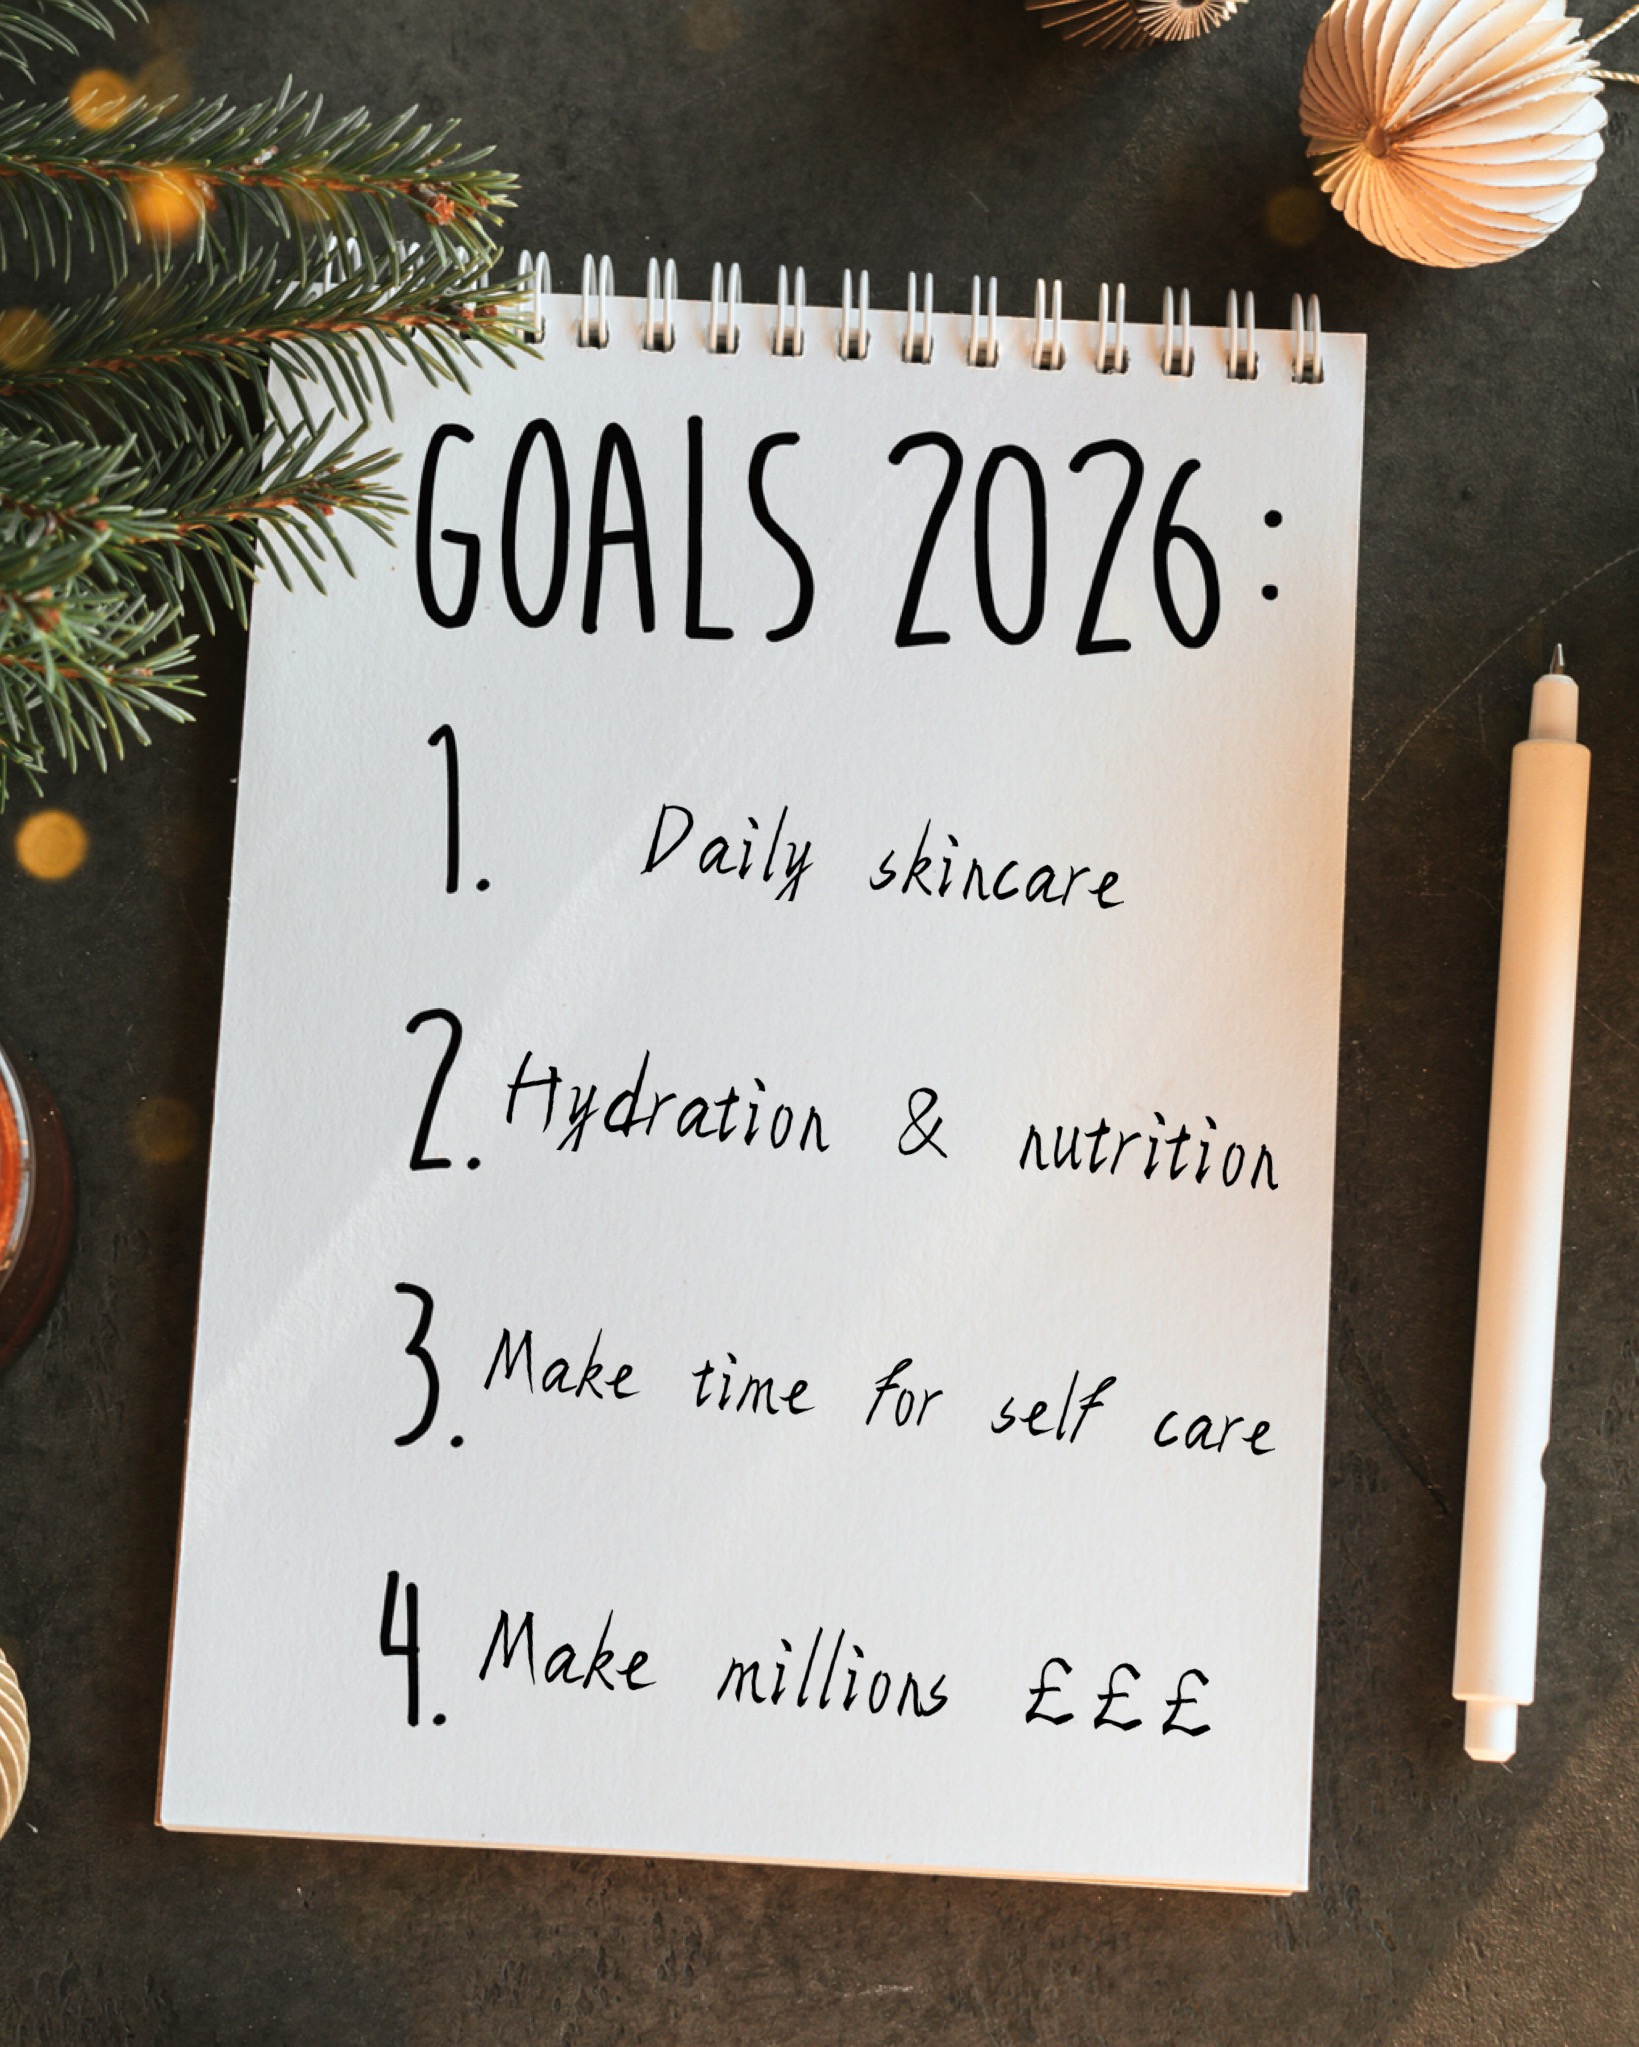 GOALS 2026:
1. Daily skincare
2. Hydration & nutrition
3. Make time for self care
4. Make millions £££